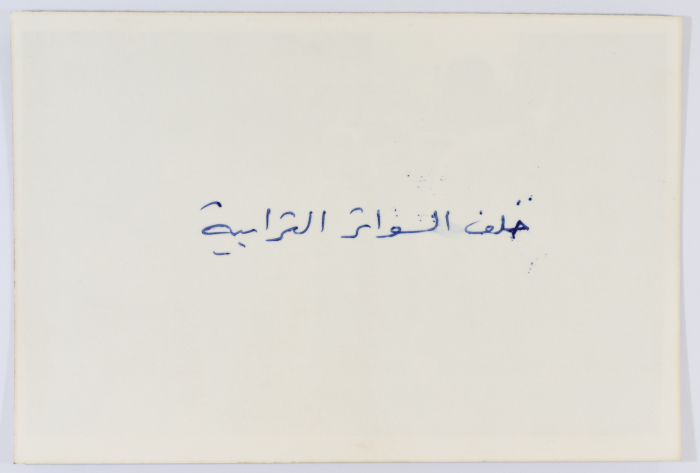 خلف السواتر الترابية